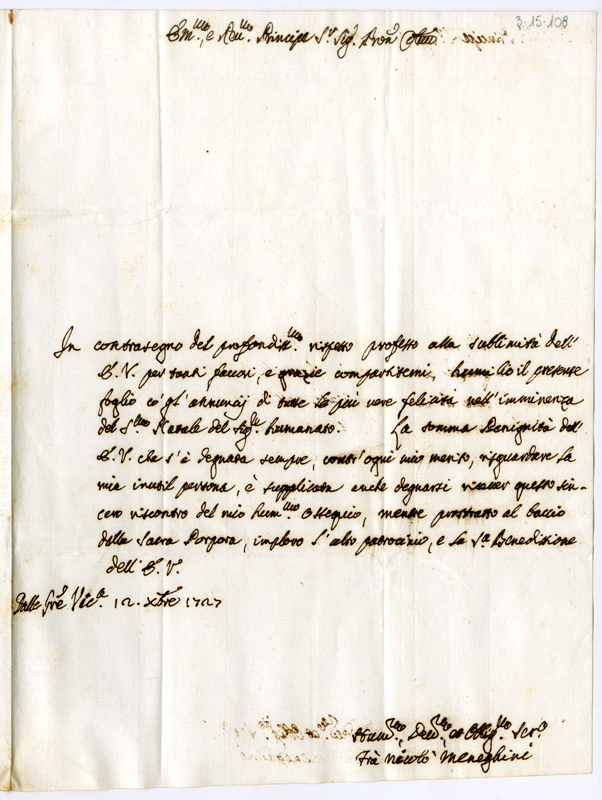 3-15-108
Em.mo, e Rev.mo Principe S.r Sig.r Pron.
In contrasegno del profondiss.mo rispetto professo alla sublimità dell'
E. V. per tanti favori, e grazie compartitemi, humilio il presente
foglio co' gl'annuncj di tutte le più vere felicità nell'imminenza
del S.mo Natale del Sig.re humanato. La somma Benignità dell'
E. V. che s'è degnata sempre, contr'ogni mio merito, risguardare la
mia inutil persona, è supplicata anche degnarsi riceuer questo sin-
cero riscontro del mio hum.mo Ossequio, mentre prostrato al baccio
della Sacra Porpora, imploro l'alto patrocinio, e la S.ta Beneditione
dell' E. V.
Dalle Gre Vic.a 12. Xbre 1727
Hum.mo, Deu.mo, et Oblig.mo Ser.e
Frà Nicolò Meneghini